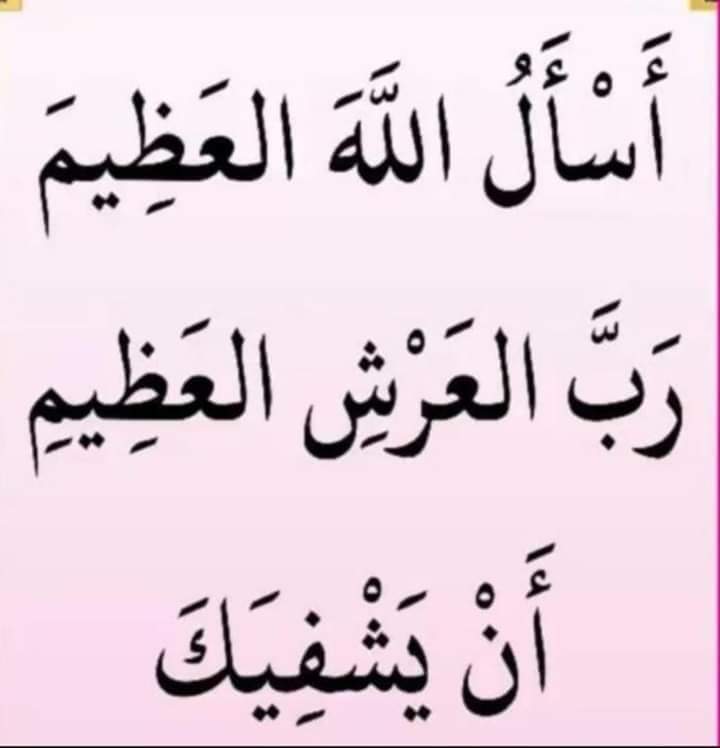 أَسْأَلُ اللَّهَ العَظِيمَ
رَبَّ العَرْشِ العَظِيمِ
أَنْ يَشْفِيَكَ